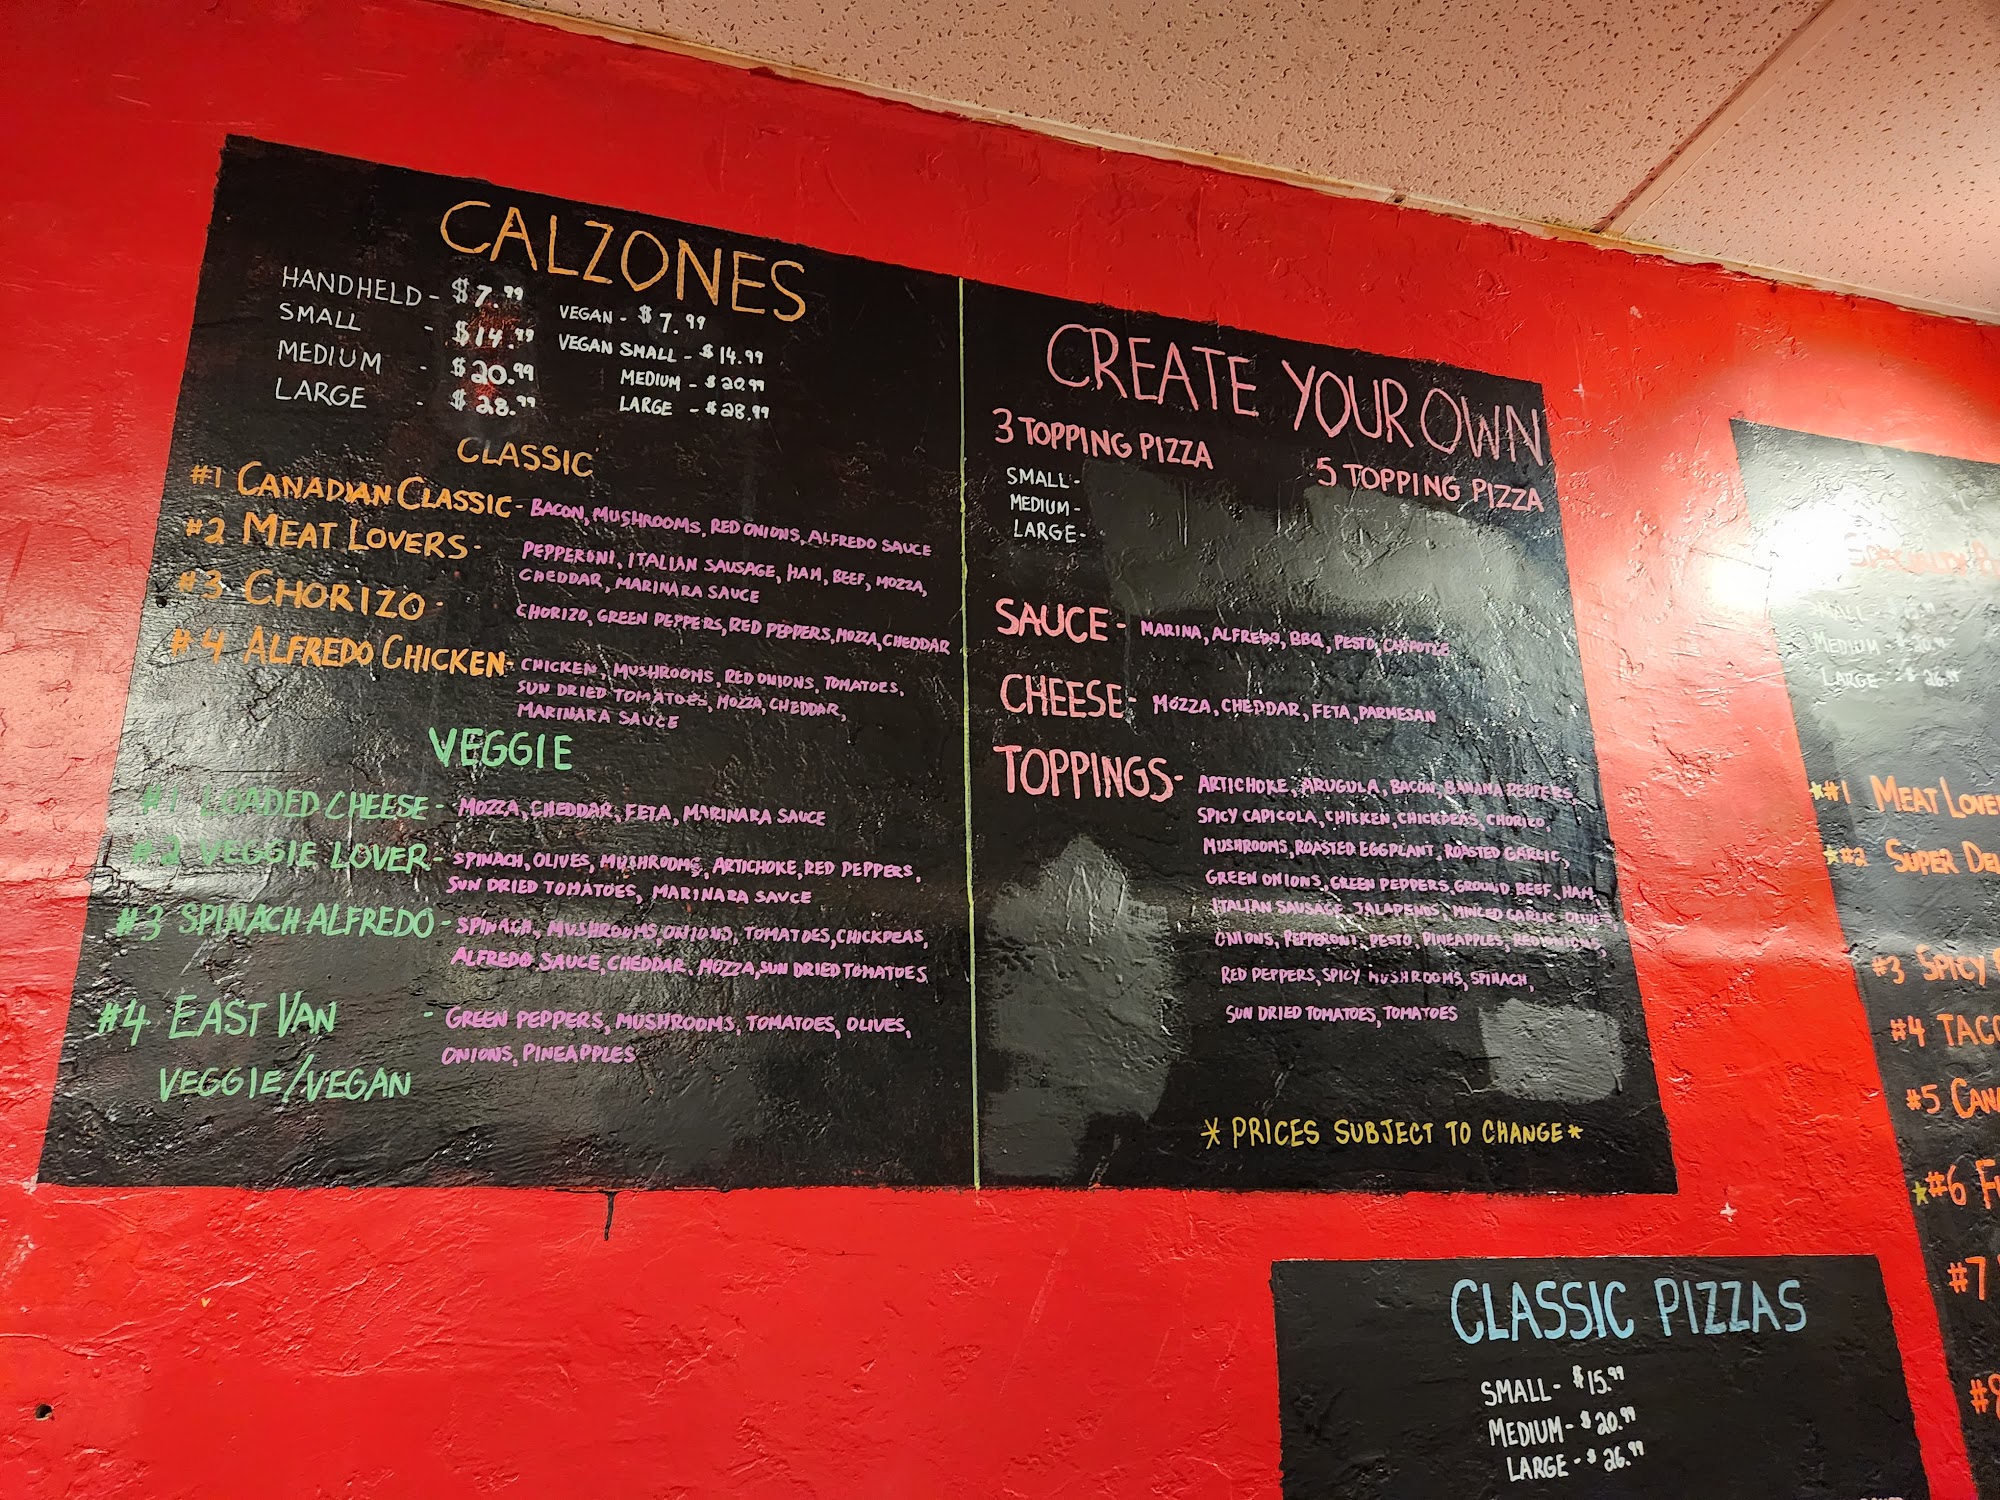 CALZONES
HANDHELD - $7.99
SMALL - $14.99
MEDIUM - $20.99
LARGE - $28.99
VEGAN - $7.99
VEGAN SMALL - $14.99
MEDIUM - $20.99
LARGE - $28.99
CLASSIC
#1 CANADIAN CLASSIC - BACON, MUSHROOMS, RED ONIONS, ALFREDO SAUCE
#2 MEAT LOVERS - PEPPERONI, ITALIAN SAUSAGE, HAM, BEEF, MOZZA,
CHEDDAR, MARINARA SAUCE
#3 CHORIZO - CHORIZO, GREEN PEPPERS, RED PEPPERS, MOZZA, CHEDDAR
#4 ALFREDO CHICKEN - CHICKEN, MUSHROOMS, RED ONIONS, TOMATOES,
SUN DRIED TOMATOES, MOZZA, CHEDDAR,
MARINARA SAUCE
VEGGIE
#1 LOADED CHEESE - MOZZA, CHEDDAR, FETA, MARINARA SAUCE
#2 VEGGIE LOVER - SPINACH, OLIVES, MUSHROOMS, ARTICHOKE, RED PEPPERS,
SUN DRIED TOMATOES, MARINARA SAUCE
#3 SPINACH ALFREDO - SPINACH, MUSHROOMS, ONIONS, TOMATOES, CHICKPEAS,
ALFREDO SAUCE, CHEDDAR, MOZZA, SUN DRIED TOMATOES
#4 EAST VAN - GREEN PEPPERS, MUSHROOMS, TOMATOES, OLIVES,
VEGGIE/VEGAN ONIONS, PINEAPPLES
CREATE YOUR OWN
3 TOPPING PIZZA
5 TOPPING PIZZA
SMALL -
MEDIUM -
LARGE -
SAUCE - MARINA, ALFREDO, BBQ, PESTO, CHIPOTLE
CHEESE - MOZZA, CHEDDAR, FETA, PARMESAN
TOPPINGS - ARTICHOKE, ARUGULA, BACON, BANANA PEPPERS,
SPICY CAPICOLA, CHICKEN, CHICKPEAS, CHORIZO,
MUSHROOMS, ROASTED EGGPLANT, ROASTED GARLIC,
GREEN ONIONS, GREEN PEPPERS, GROUND BEEF, HAM,
ITALIAN SAUSAGE, JALAPENOS, MINCED GARLIC, OLIVES,
ONIONS, PEPPERONI, PESTO, PINEAPPLES, RED ONIONS,
RED PEPPERS, SPICY MUSHROOMS, SPINACH,
SUN DRIED TOMATOES, TOMATOES
* PRICES SUBJECT TO CHANGE *
CLASSIC PIZZAS
SMALL - $15.99
MEDIUM - $20.99
LARGE - $26.99
SPECIALTY
SMALL -
MEDIUM - $20.99
LARGE - $26.99
#1 MEAT
#2 SUPER
#3 SPICY
#4
#5
#6
#7